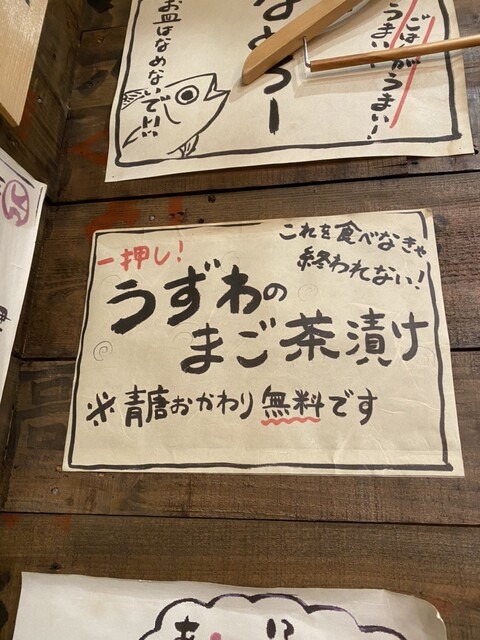 ごはんがうまい！
うまい
お皿はなめないで!!!
一押し！
これを食べなきゃ
終われない！
うずわの
まご茶漬け
※青唐おかわり無料です